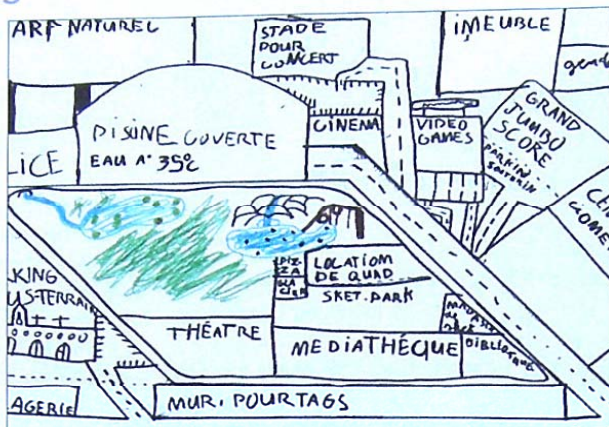 ARF NATUREL
STADE
POUR
CONCERT
IMEUBLE
gend
PISINE COUVERTE
EAU A 35°C
CINEMA
VIDEO
GAMES
GRAND
JUMBO
SCORE
PARKIN
SOUTERIN
LICE
PIZ
ZA
GLA
CIER
LOCATION
DE QUAD
SKET. PARK
RKING
US-TERRAIN
THÉATRE
MEDIATHÉQUE
AGERIE
MUR. POURTAGS